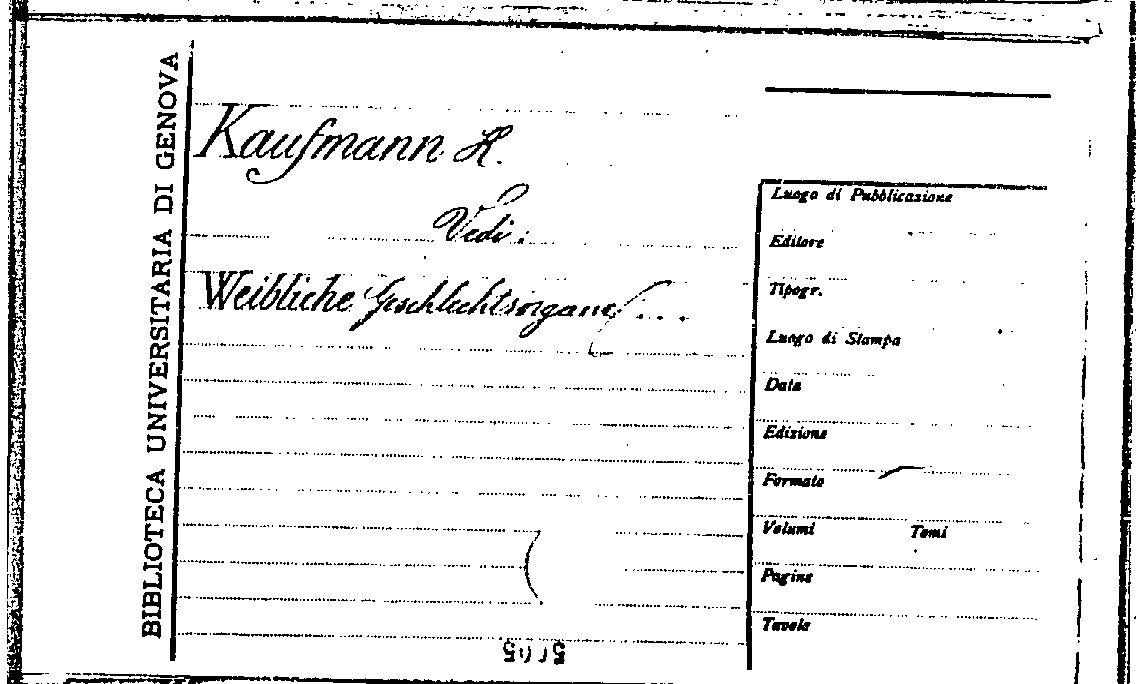 BIBLIOTECA UNIVERSITARIA DI GENOVA
Kaufmann H.
Vedi:
Weibliche Geschlechtsorgane ...
Luogo di Pubblicazione
Editore
Tipogr.
Luogo di Stampa
Data
Edizione
Formato
Volumi Tomi
Pagine
Tavole